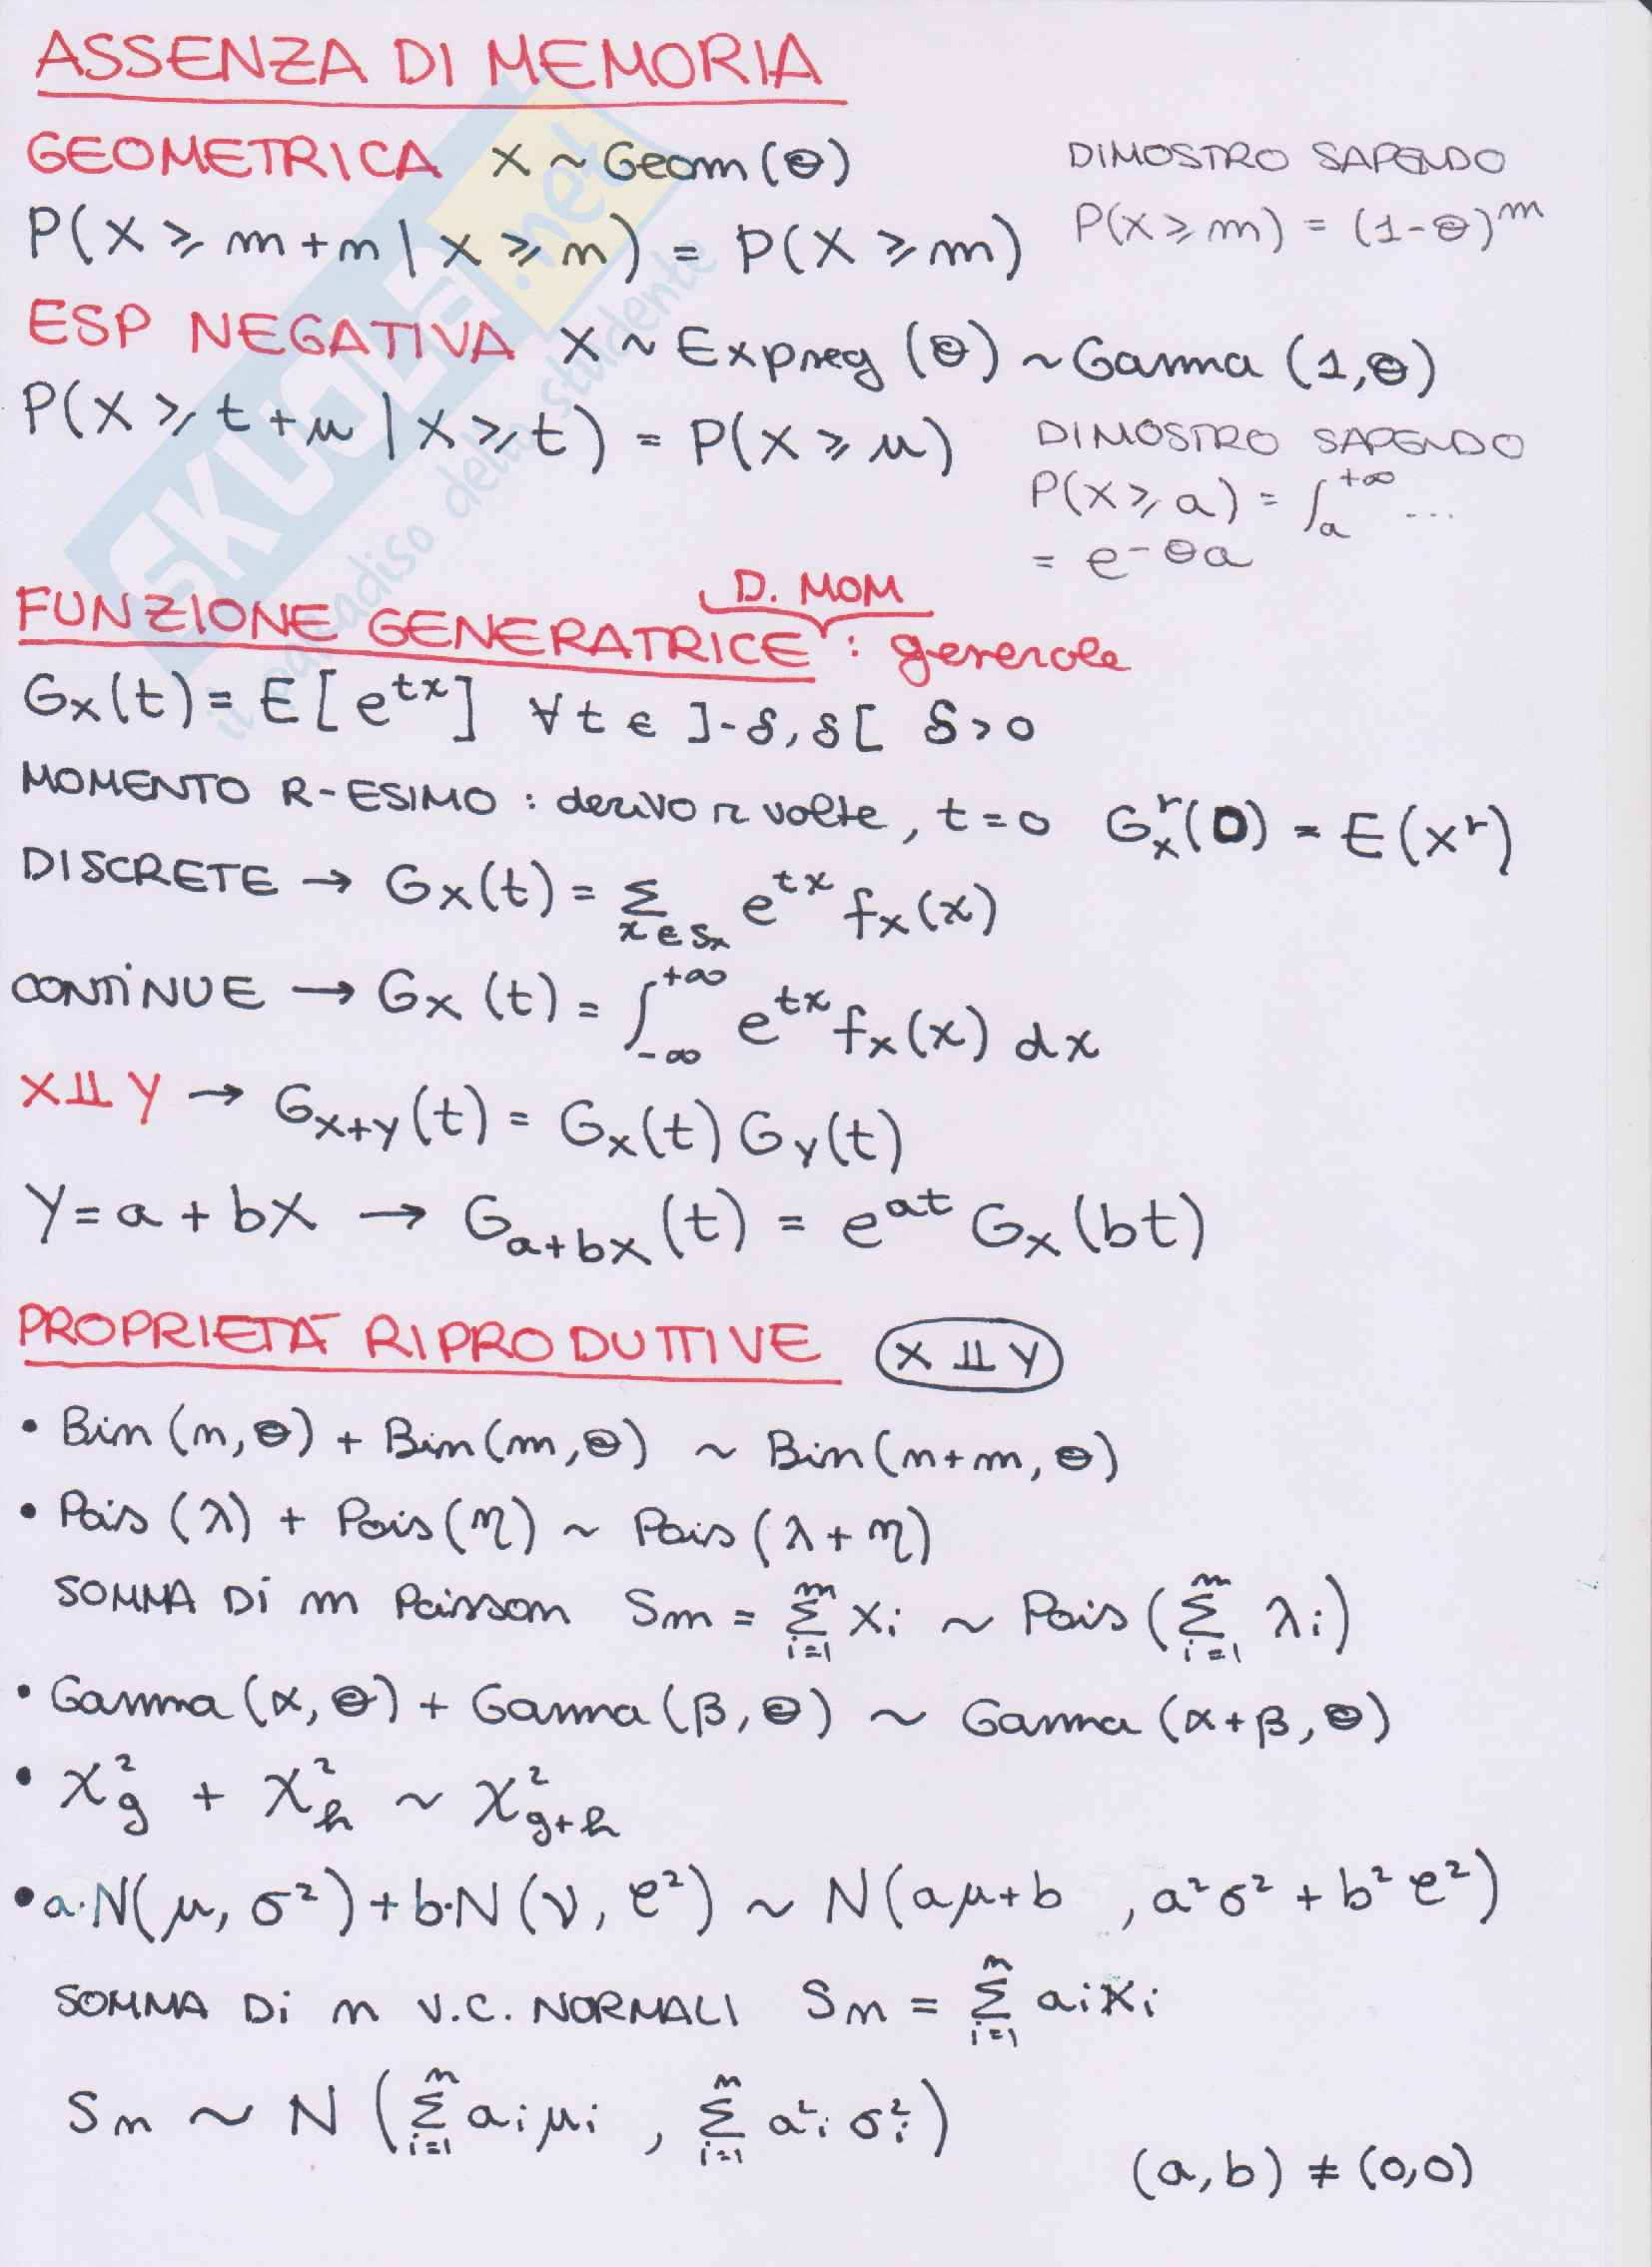 ASSENZA DI MEMORIA
GEOMETRICA X ~ Geom(θ)
DIMOSTRO SAPENDO
P(X ⩾ m+n | X ⩾ n) = P(X ⩾ m)
P(X ⩾ m) = (1-θ)^m
ESP NEGATIVA X ~ Expneg (θ) ~ Gamma (1,θ)
P(X ⩾ t+u | X ⩾ t) = P(X ⩾ u)
DIMOSTRO SAPENDO
P(X ⩾ a) = ∫_a^+∞ ...
= e^-θa
D. MOM
FUNZIONE GENERATRICE : generale
G_X(t) = E[e^tx] ∀t ∈ ]-δ,δ[ δ>0
MOMENTO R-ESIMO : derivo r volte, t=0 G_X^r(0) = E(X^r)
DISCRETE → G_X(t) = Σ_{x∈S_X} e^tx f_X(x)
CONTINUE → G_X(t) = ∫_-∞^+∞ e^tx f_X(x) dx
X⫫Y → G_{X+Y}(t) = G_X(t) G_Y(t)
Y=a+bX → G_{a+bX}(t) = e^at G_X(bt)
PROPRIETÀ RIPRODUTTIVE X⫫Y
• Bin(n,θ) + Bin(m,θ) ~ Bin(n+m,θ)
• Pois(λ) + Pois(η) ~ Pois(λ+η)
SOMMA DI n Poisson Sn = Σ_{i=1}^n Xi ~ Pois(Σ_{i=1}^n λi)
• Gamma(α,θ) + Gamma(β,θ) ~ Gamma(α+β,θ)
• χ²_g + χ²_h ~ χ²_{g+h}
• a·N(μ,σ²) + b·N(ν,e²) ~ N(aμ+b , a²σ² + b²e²)
SOMMA DI n V.C. NORMALI Sn = Σ_{i=1}^n aiXi
Sn ~ N(Σ_{i=1}^n aiμi , Σ_{i=1}^n a²i σ²i)
(a,b) ≠ (0,0)
SKUOLA.net
il paradiso dello studente